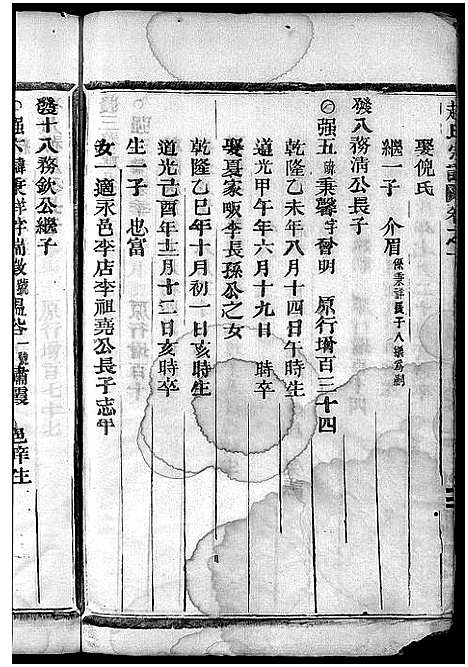 趙氏宗譜
娶倪氏
繼一子 介眉 係秉祥長子入繼為嗣
發八務清公長子
○强五諱秉馨字會明 原行增百三十四
乾隆乙未年八月十四日午時生
道光甲午年六月十九日 時卒
娶夏家畈李長孫公之女
乾隆乙巳年十月初一日亥時生
道光己酉年十二月十二日亥時卒
生一子 也富
女 適永邑李店李祖堯公長子志年
發十八務欽公繼子
○强六諱秉祥字瑞啟號 谷一號肅霞 邑庠生